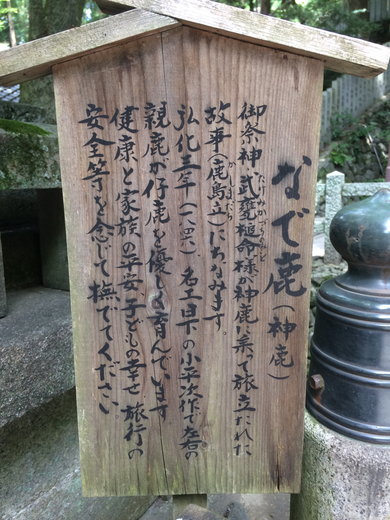 なで鹿(神鹿)
御祭神 武甕槌命様が神鹿に乗って旅立たれた
故事(鹿島立)にちなみます。
弘化三年(一八四六)名工日下の小平次作で左右の
親鹿が仔鹿を優しく育んでいます
健康と家族の平安子どもの幸せ 旅行の
安全等を念じて撫でてください